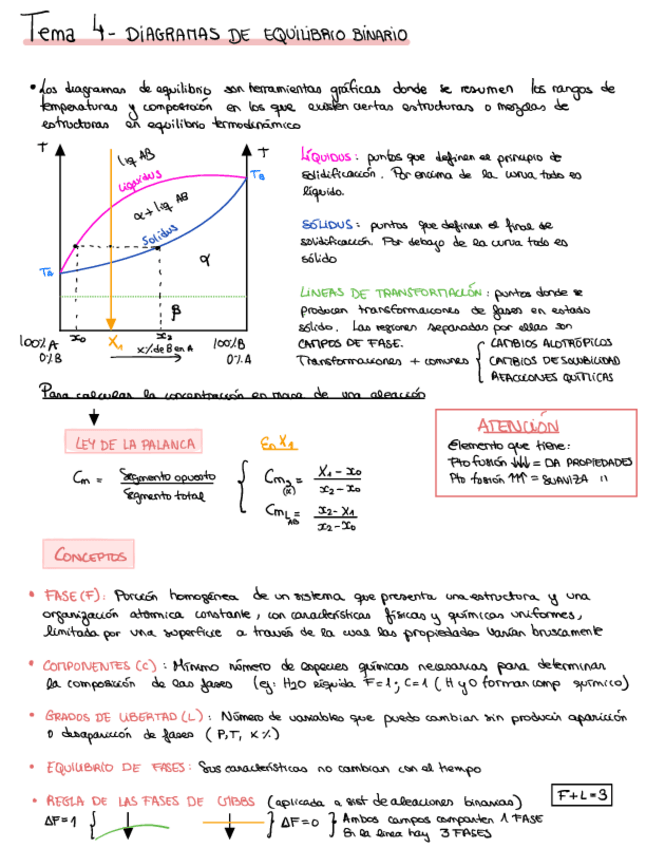 Tema 4- DIAGRAMAS DE EQUILIBRIO BINARIO
• Los diagramas de equilibrio son herramientas gráficas donde se resumen los rangos de
temperaturas y composición en los que existen ciertas estructuras o mezclas de
estructuras en equilibrio termodinámico
T
T
liq AB
Líquidus
α + liq AB
Solidus
α
β
TB
Ta
100% A
0% B
x0
X1
x2
x % de B en A
100% B
0% A
LÍQUIDUS: puntos que definen el principio de
solidificación. Por encima de la curva todo es
líquido.
SÓLIDUS: puntos que definen el final de
solidificación. Por debajo de la curva todo es
sólido
LÍNEAS DE TRANSFORMACIÓN: puntos donde se
producen transformaciones de fases en estado
sólido. Las regiones separadas por ellas son
CAMPOS DE FASE.
Transformaciones + comunes
CAMBIOS ALOTRÓPICOS
CAMBIOS DE SOLUBILIDAD
REACCIONES QUÍMICAS
Para calcular la concentración en masa de una aleación
LEY DE LA PALANCA
Cm = Segmento opuesto
Segmento total
En X1
Cm (α) = X1 - x0
x2 - x0
Cm L AB = x2 - X1
x2 - x0
ATENCIÓN
Elemento que tiene:
Pto fusión ↓↓↓ = DA PROPIEDADES
Pto fusión ↑↑↑ = SUAVIZA "
CONCEPTOS
• FASE (F): Porción homogénea de un sistema que presenta una estructura y una
organización atómica constante, con características físicas y químicas uniformes,
limitada por una superficie a través de la cual las propiedades varían bruscamente
• COMPONENTES (C): Mínimo número de especies químicas necesarias para determinar
la composición de las fases (ej: H2O líquida F=1; C=1 (H y O forman comp químico)
• GRADOS DE LIBERTAD (L): Número de variables que puedo cambiar sin producir aparición
o desaparición de fases (P, T, X %)
• EQUILIBRIO DE FASES: Sus características no cambian con el tiempo
• REGLA DE LAS FASES DE GIBBS (aplicada a sist de aleaciones binarias)
F+L=3
ΔF=1
ΔF=0
Ambos campos comparten 1 FASE
En la línea hay 3 FASES